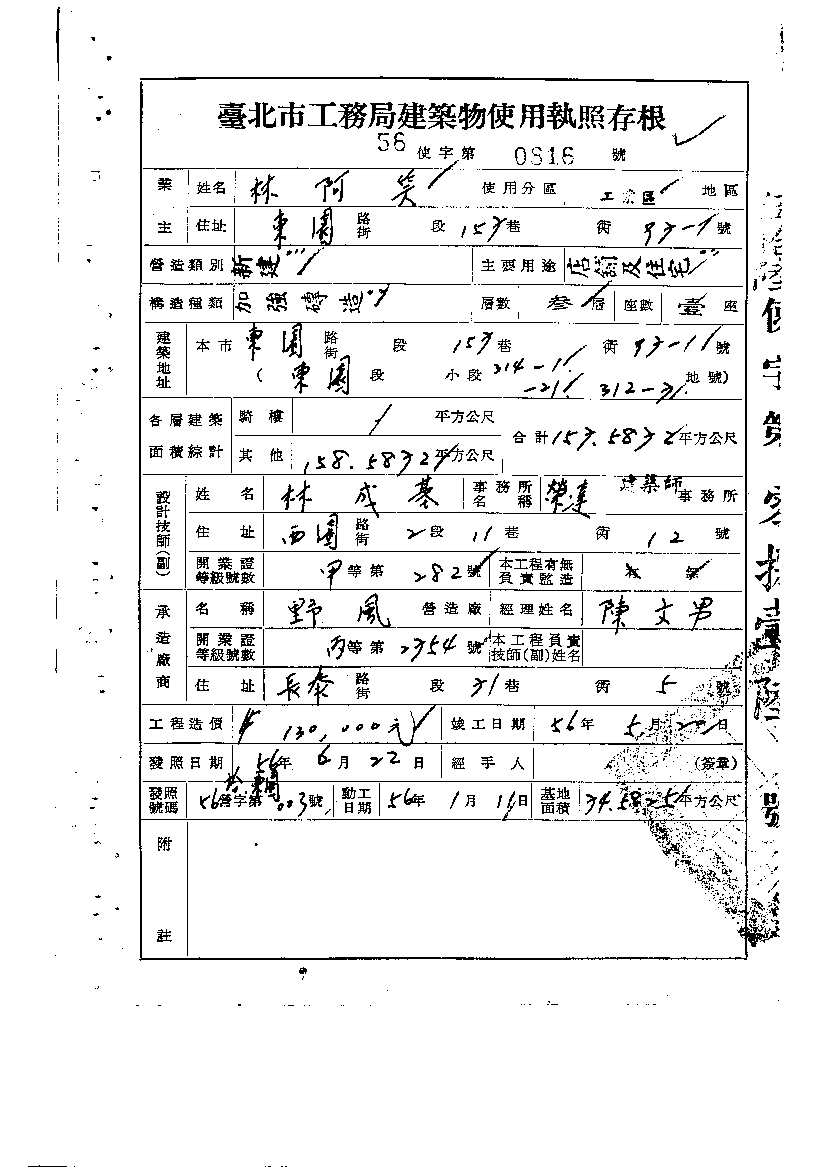 臺北市工務局建築物使用執照存根
56 使字第 0816 號
業主 姓名 林阿笑 使用分區 工業區 地區
住址 東園 路街 段 153巷 衖 93-1 號
營造類別 新建 主要用途 店鋪及住宅
構造種類 加強磚造 層數 叁層 座數 壹座
建築地址 本市 東園 路街 段 153巷 衖 93-11號
(東園 段 小段 314-11. -21. 312-31. 地號)
各層建築面積綜計 騎樓 / 平方公尺
合計 平方公尺
其他 158.5832 平方公尺
設計技師(副) 姓名 林成基 事務所名稱 榮建 建築師 事務所
住址 西園 路街 2段 11巷 衖 12號
開業證等級號數 甲等第 282號 本工程有無負責監造 有 無
承造廠商 名稱 野風 營造廠 經理姓名 陳文男
開業證等級號數 丙等第 2354號 本工程負責技師(副)姓名
住址 長泰 路街 段 31巷 衖 5號
工程造價 130,000元 竣工日期 56年 5月 20日
發照日期 56年 6月 22日 經手人 (簽章)
發照號碼 56營字第 003號 動工日期 56年 1月 11日 基地面積 34.5825 平方公尺
附註